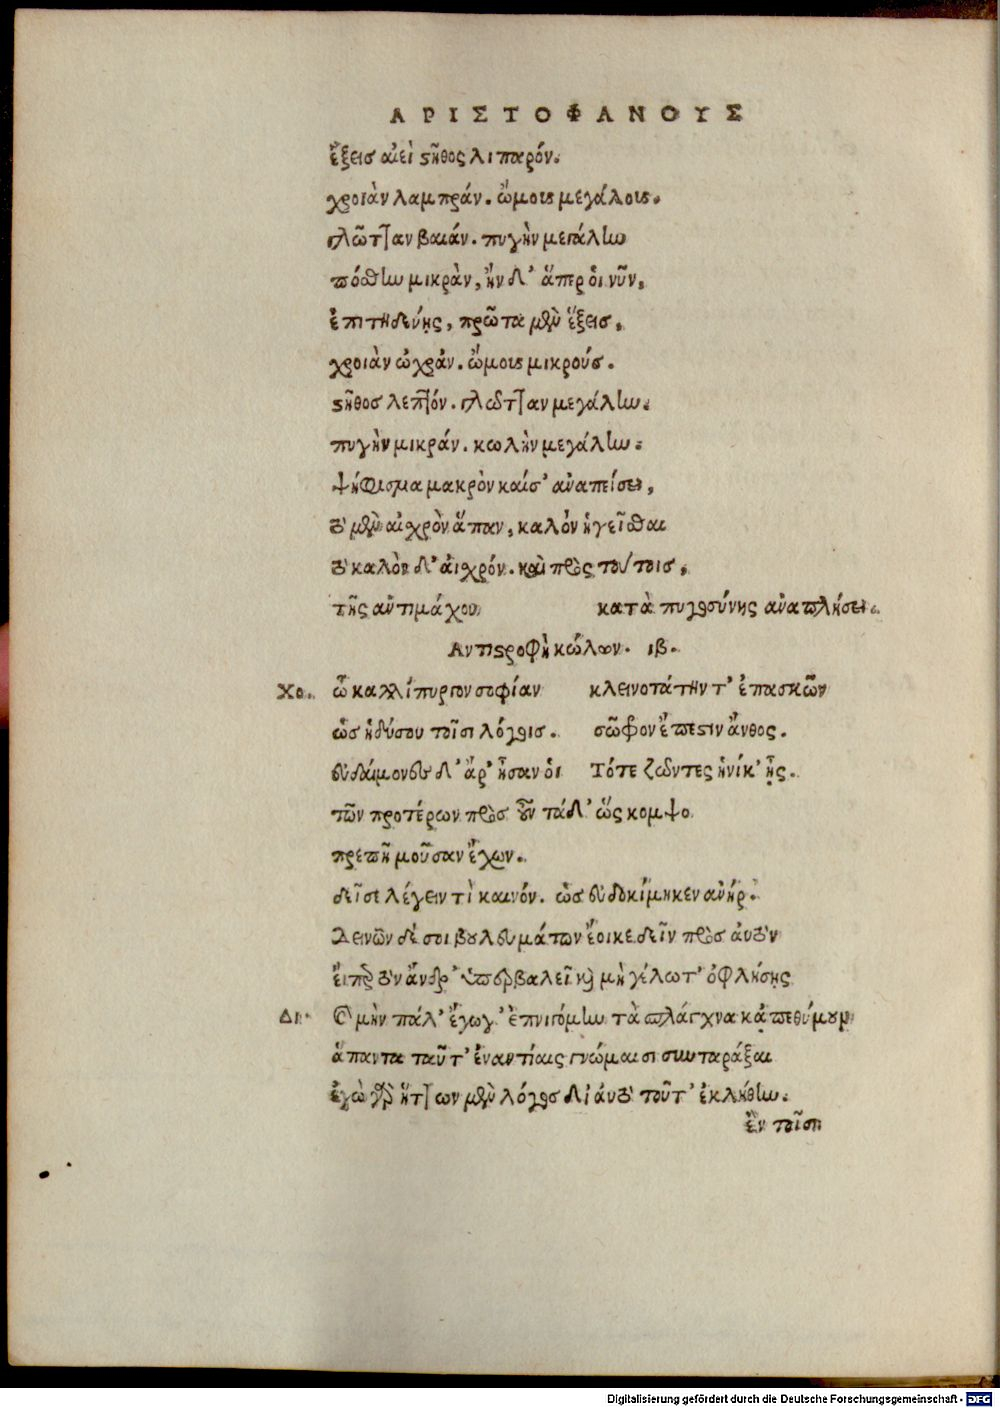 ΑΡΙΣΤΟΦΑΝΟΥΣ
ἕξεις αἰεὶ στῆθος λιπαρόν.
χροιὰν λαμπράν. ὤμους μεγάλους.
γλῶτταν βαιάν. πυγὴν μεγάλην
πόσθην μικρὰν, ἢν δ' ἅπερ οἱ νῦν,
ἐπιτηδεύῃς, πρῶτα μὲν ἕξεις,
χροιὰν ὠχράν. ὤμους μικρούς.
στῆθος λεπτόν. γλῶτταν μεγάλην.
πυγὴν μικράν. κωλὴν μεγάλην.
ψήφισμα μακρὸν καί σ' ἀναπείσει,
τὸ μὲν αἰσχρὸν ἅπαν, καλὸν ἡγεῖσθαι
τὸ καλὸν δ' αἰσχρόν. καὶ πρὸς τούτοις,
τῆς ἀντιμάχου κατὰ πυγοσύνης ἀναπλήσει.
Αντιστροφὴ κώλων. ιβ.
Χο. ὦ καλλίπυργον σοφίαν κλεινοτάτην τ' ἐπασκῶν
ὡς ἡδύσου τοῖσι λόγοις. σῶφρον ἔπεστιν ἄνθος.
εὐδαίμονες δ' ἆρ' ἦσαν οἱ Τότε ζῶντες ἡνίκ' ἦς.
τῶν προτέρων πρὸς οὖν τάδ' ὥς κομψο
πρεπῆ μοῦσαν ἔχων.
δεῖ σε λέγειν τὶ καινόν. ὡς εὐδοκίμηκεν ἀνήρ.
Δεινῶν δέ σοι βουλευμάτων ἔοικε δεῖν πρὸς αὐτὸν
εἴπερ τὸν ἄνδρ' ὑπερβαλεῖ καὶ μὴ γέλωτ' ὀφλήσῃς
Δι. Καὶ μὴν πάλ' ἔγωγ' ἐπνιγόμην τὰ σπλάγχνα κἀπεθύμουν
ἅπαντα ταῦτ' ἐναντίαις γνώμαισι συνταράξαι
ἐγὼ γὰρ ἥττων μὲν λόγος δι' αὐτὸ τοῦτ' ἐκλήθην.
ἐν τοῖσι
Digitalisierung gefördert durch die Deutsche Forschungsgemeinschaft - DFG